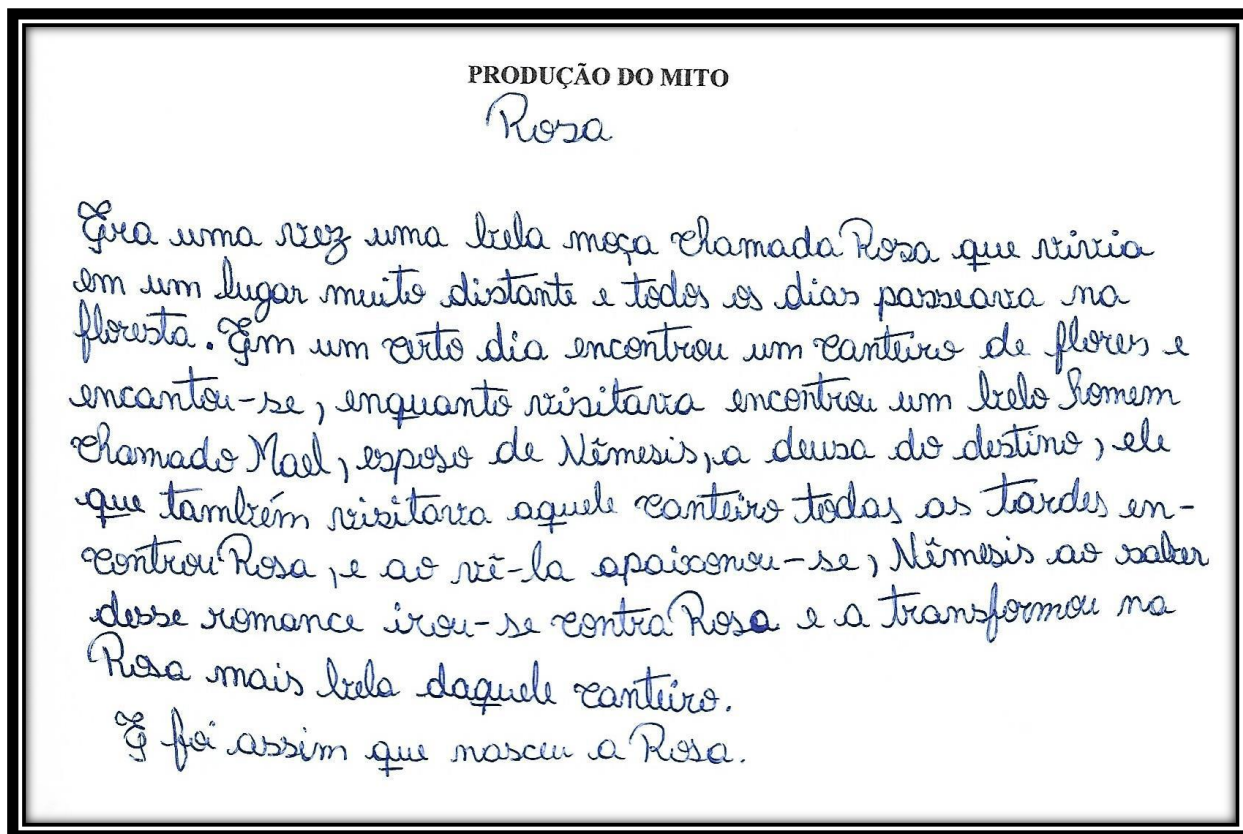 PRODUÇÃO DO MITO
Rosa
Era uma vez uma bela moça chamada Rosa que vivia
em um lugar muito distante e todos os dias passeava na
floresta. Em um certo dia encontrou um canteiro de flores e
encantou-se, enquanto visitava encontrou um belo homem
chamado Mael, esposo de Nêmesis, a deusa do destino, ele
que também visitava aquele canteiro todas as tardes en-
controu Rosa, e ao vê-la apaixonou-se, Nêmesis ao saber
desse romance irou-se contra Rosa e a transformou na
Rosa mais bela daquele canteiro.
E foi assim que nasceu a Rosa.